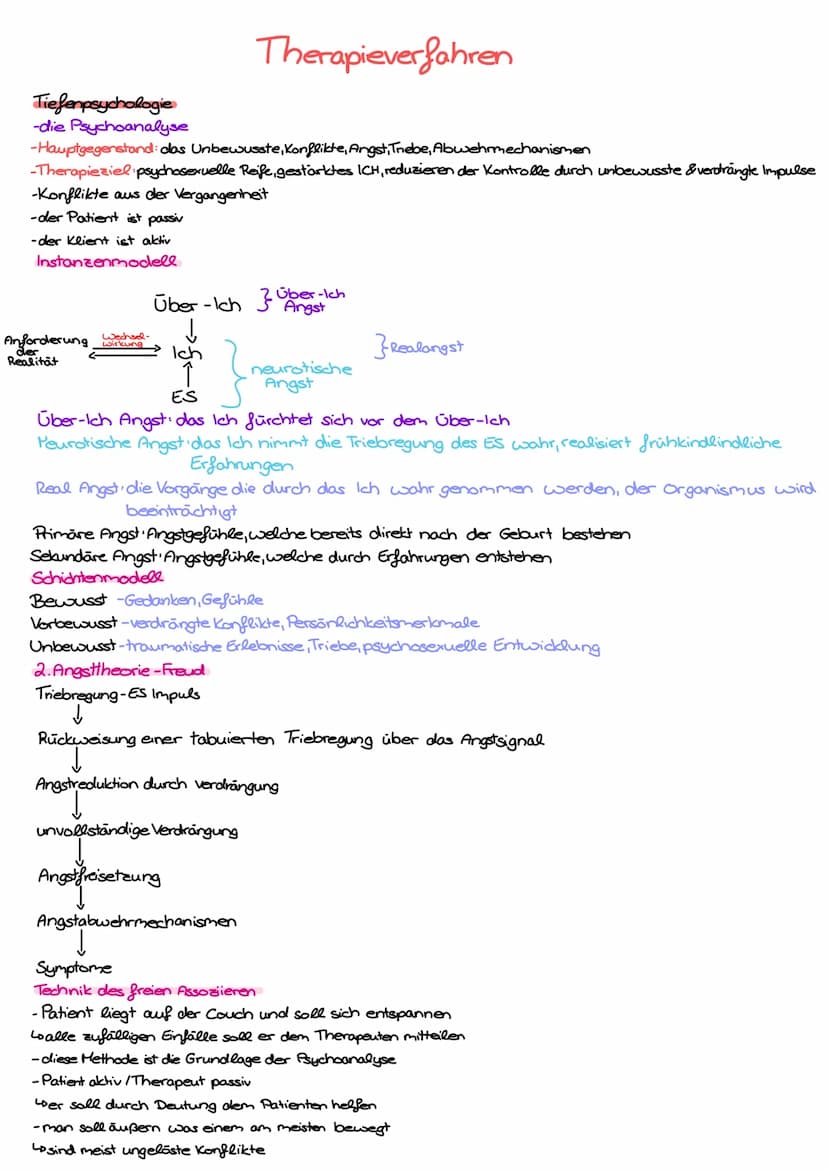 Therapieverfahren
Tiefenpsychologie
-die Psychoanalyse
-Hauptgegenstand: das Unbewusste, Konflikte, Angst, Triebe, Abwehrmechanismen
-Therapieziel: psychosexuelle Reife, gestärktes ICH, reduzieren der Kontrolle durch unbewusste & verdrängte Impulse
-Konflikte aus der Vergangenheit
-der Patient ist passiv
-der Klient ist aktiv
Instanzenmodell
Über-Ich } Über-Ich Angst
Anforderung der Realität
Wechsel-
wirkung
Ich
} Realangst
neurotische
Angst
ES
Über-Ich Angst: das Ich fürchtet sich vor dem Über-Ich
Neurotische Angst: das Ich nimmt die Triebregung des ES wahr, realisiert frühkindlindliche
Erfahrungen
Real Angst: die Vorgänge die durch das Ich wahr genommen werden, der Organismus wird
beeinträchtigt
Primäre Angst: Angstgefühle, welche bereits direkt nach der Geburt bestehen
Sekundäre Angst: Angstgefühle, welche durch Erfahrungen entstehen
Schichtenmodell
Bewusst -Gedanken, Gefühle
Vorbewusst -verdrängte Konflikte, Persönlichkeitsmerkmale
Unbewusst -traumatische Erlebnisse, Triebe, psychosexuelle Entwicklung
2. Angsttheorie -Freud
Triebregung - ES Impuls
↓
Rückweisung einer tabuierten Triebregung über das Angstsignal
↓
Angstreduktion durch Verdrängung
↓
unvollständige Verdrängung
↓
Angstfreisetzung
↓
Angstabwehrmechanismen
↓
Symptome
Technik des freien Assoziieren
- Patient liegt auf der Couch und soll sich entspannen
↳ alle zufälligen Einfälle soll er dem Therapeuten mitteilen
- diese Methode ist die Grundlage der Psychoanalyse
- Patient aktiv / Therapeut passiv
↳ er soll durch Deutung dem Patienten helfen
- man soll äußern was einem am meisten bewegt
↳ sind meist ungelöste Konflikte